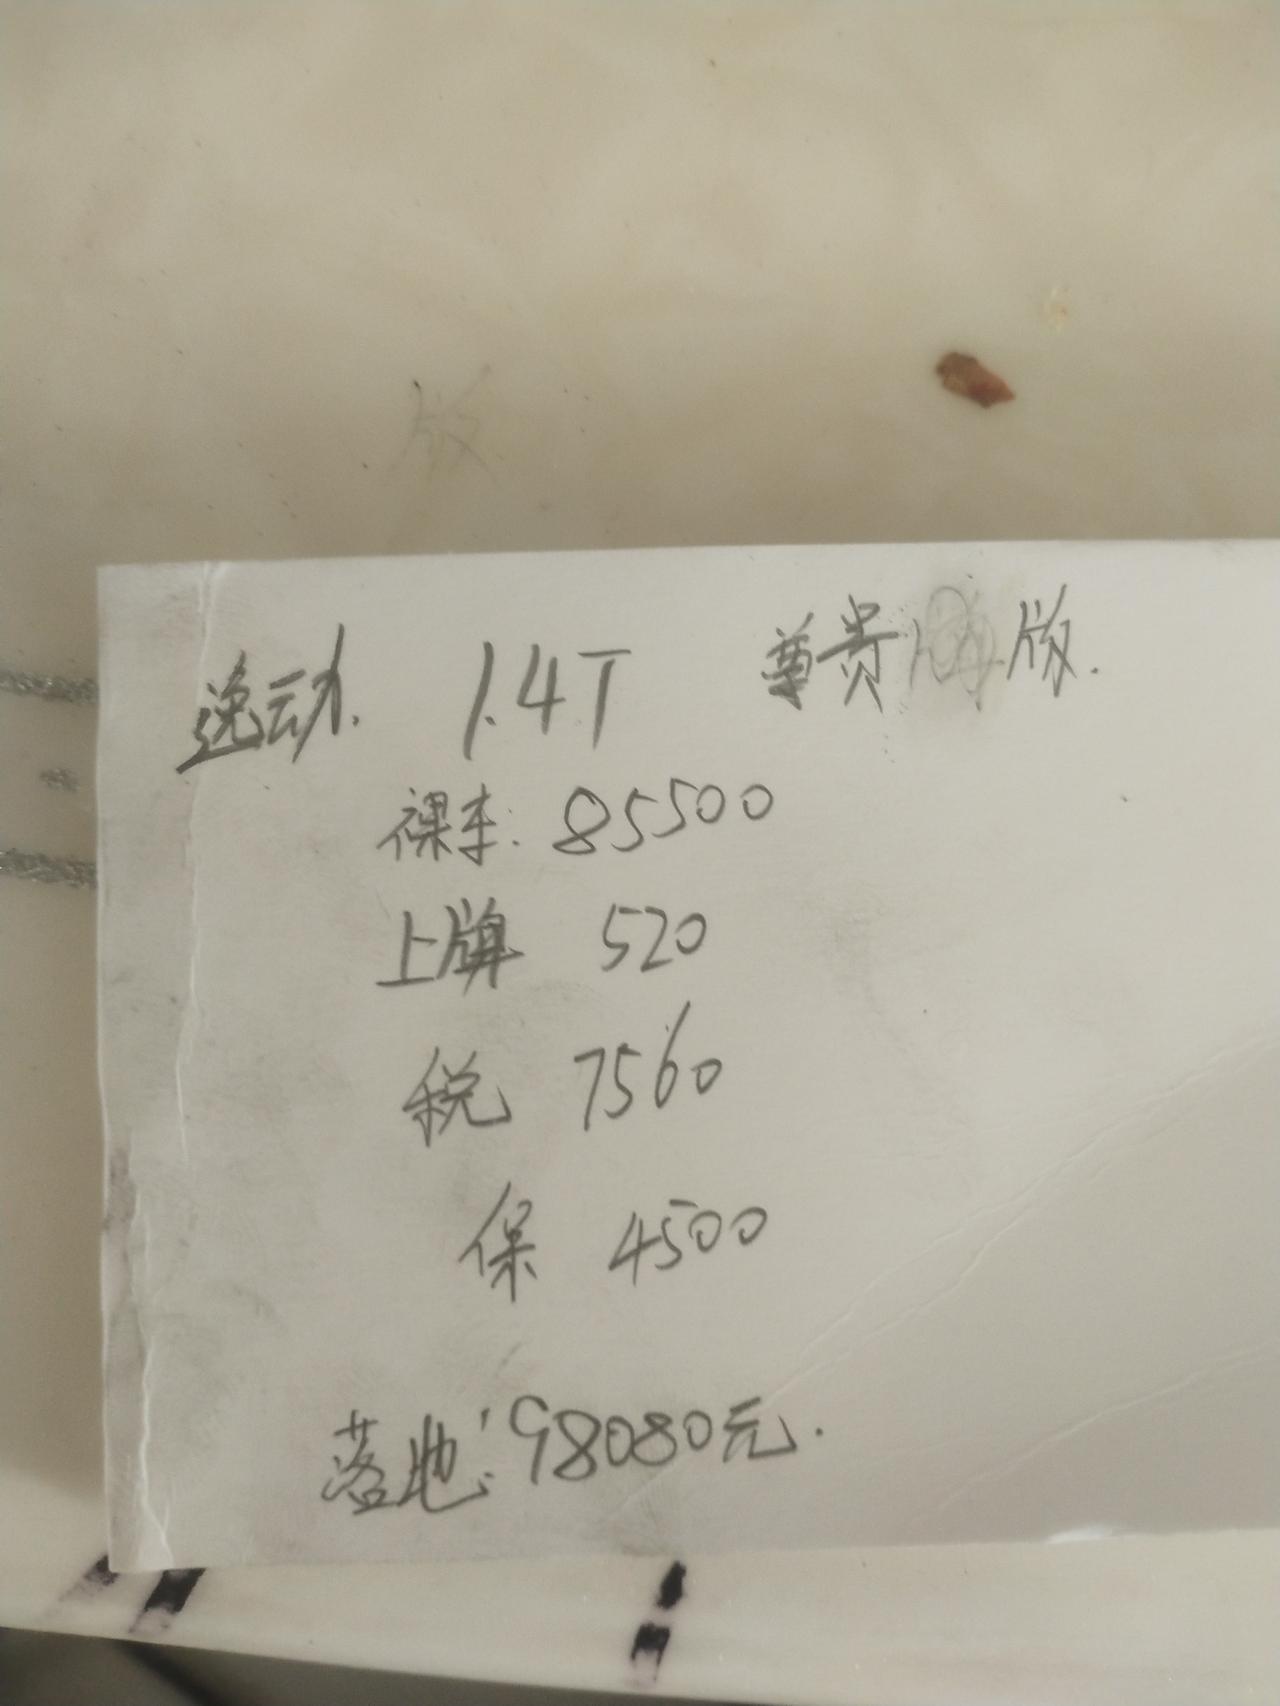 版
逸动. 1.4T 尊贵版.
裸车: 85500
上牌 520
税 7560
保 4500
落地: 98080元.